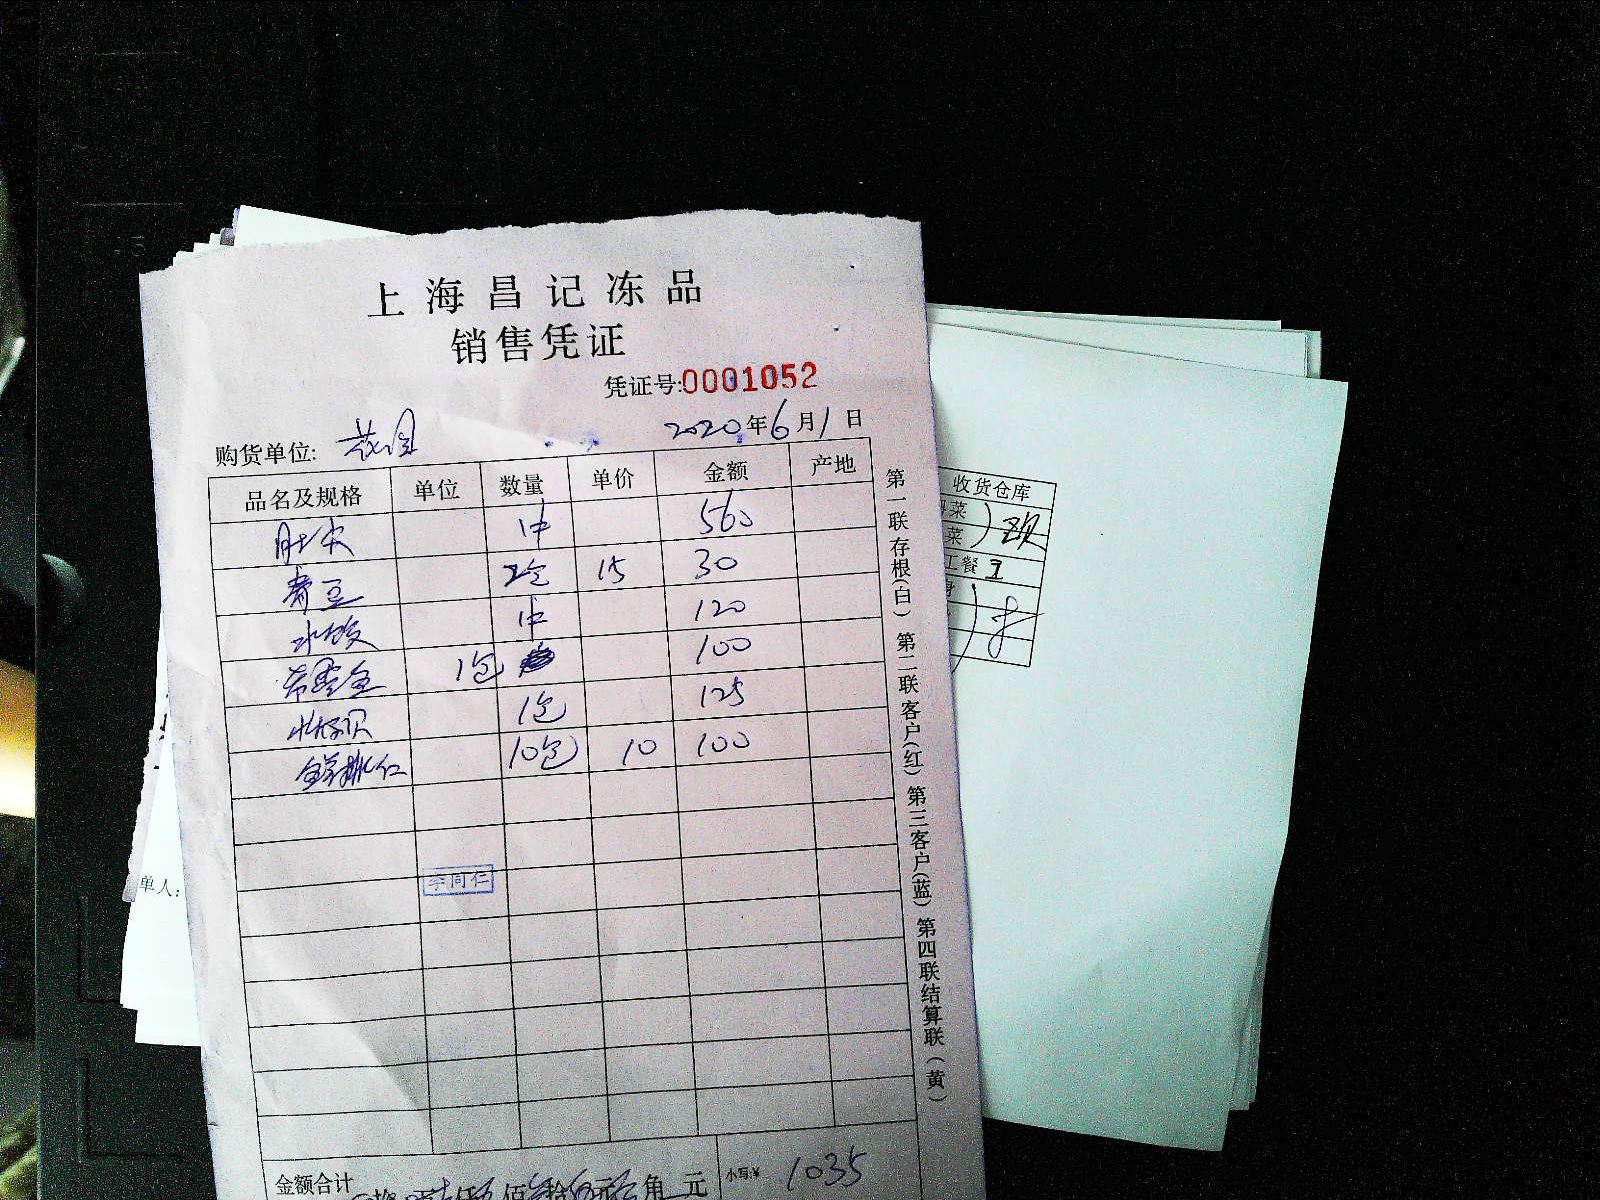 上海昌记冻品
销售凭证
凭证号:0001052
购货单位: 花园 2020年6月1日
品名及规格 单位 数量 单价 金额 产地
肚尖 1件 560
青豆 2包 15 30
水饺 1件 120
1包 100
1包 125
10包 10 100
李同仁
金额合计 佰 拾 元 角 元 小写:¥ 1035
第一联存根(白) 第二联客户(红) 第三客户(蓝) 第四联结算联(黄)
收货仓库
菜
菜
工餐
单人: